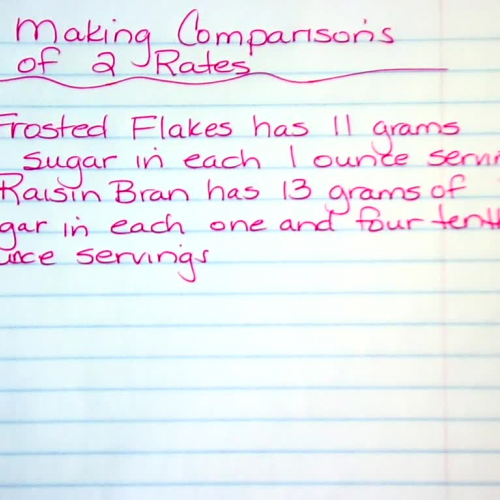 Making Comparisons
of 2 Rates
Frosted Flakes has 11 grams
sugar in each 1 ounce
Raisin Bran has 13 grams of
in each one and four
servings